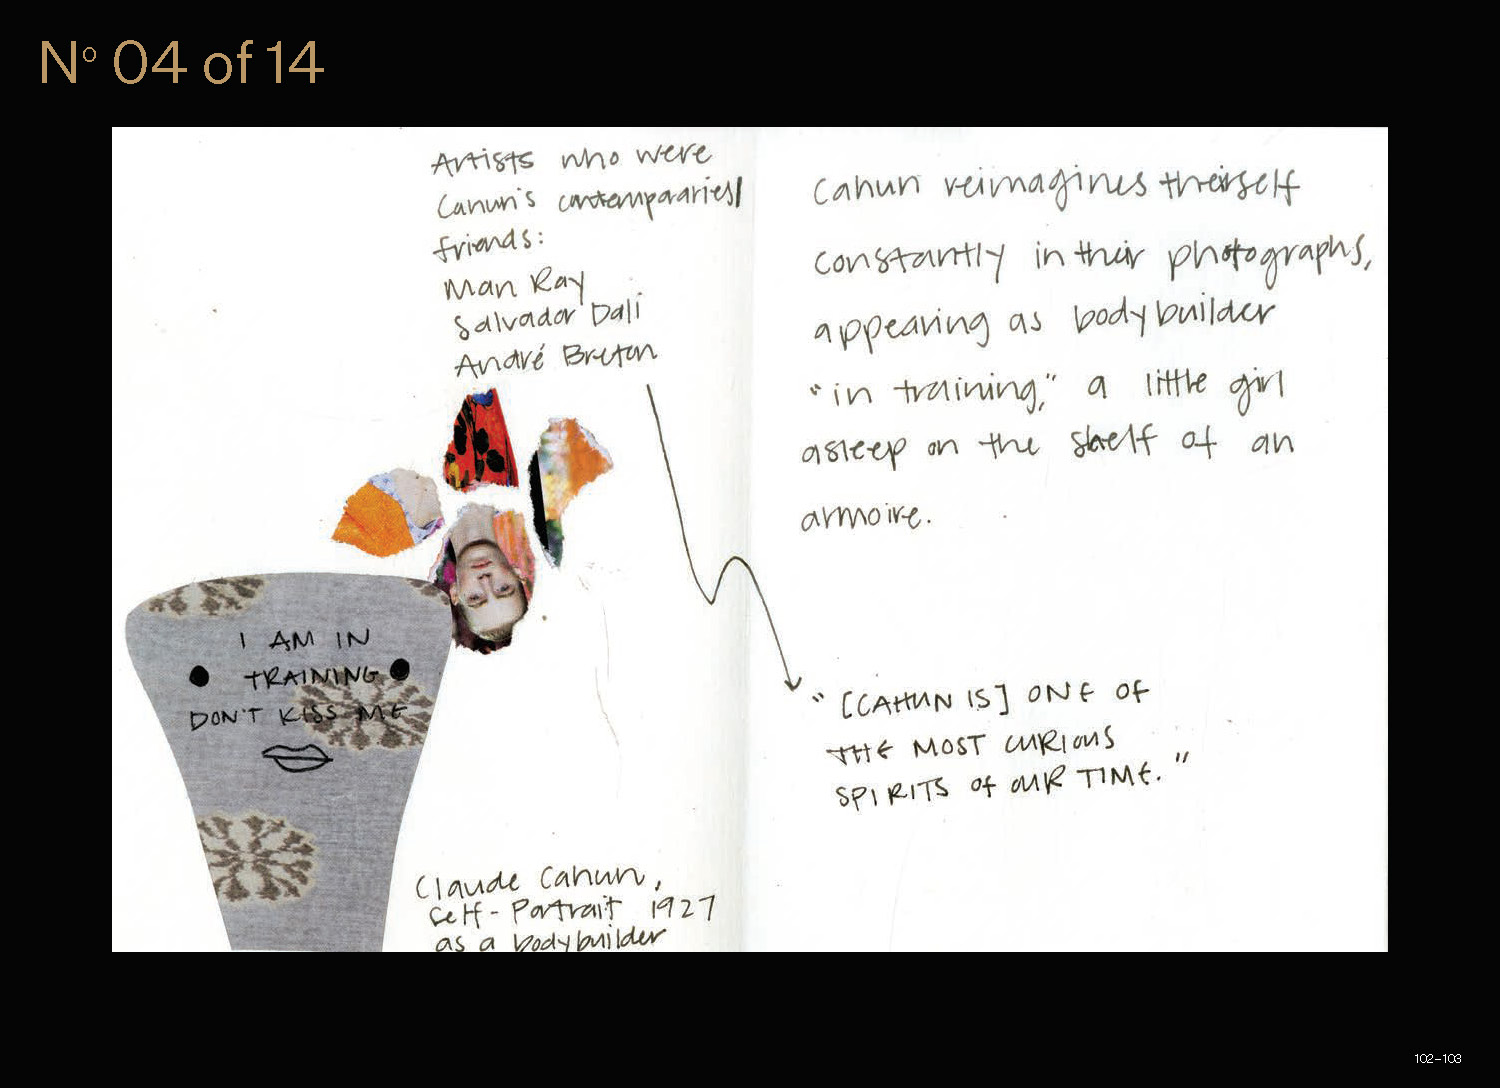 Nº 04 of 14
Artists who were
Cahun's contemporaries/
friends:
Man Ray
Salvador Dali
André Breton
I AM IN
TRAINING
DON'T KISS ME
Claude Cahun,
Self-Portrait 1927
as a bodybuilder
Cahun reimagines theirself
constantly in their photographs,
appearing as bodybuilder
"in training," a little girl
asleep on the shelf of an
armoire.
"[CAHUN IS] ONE OF
THE MOST CURIOUS
SPIRITS OF OUR TIME."
102–103